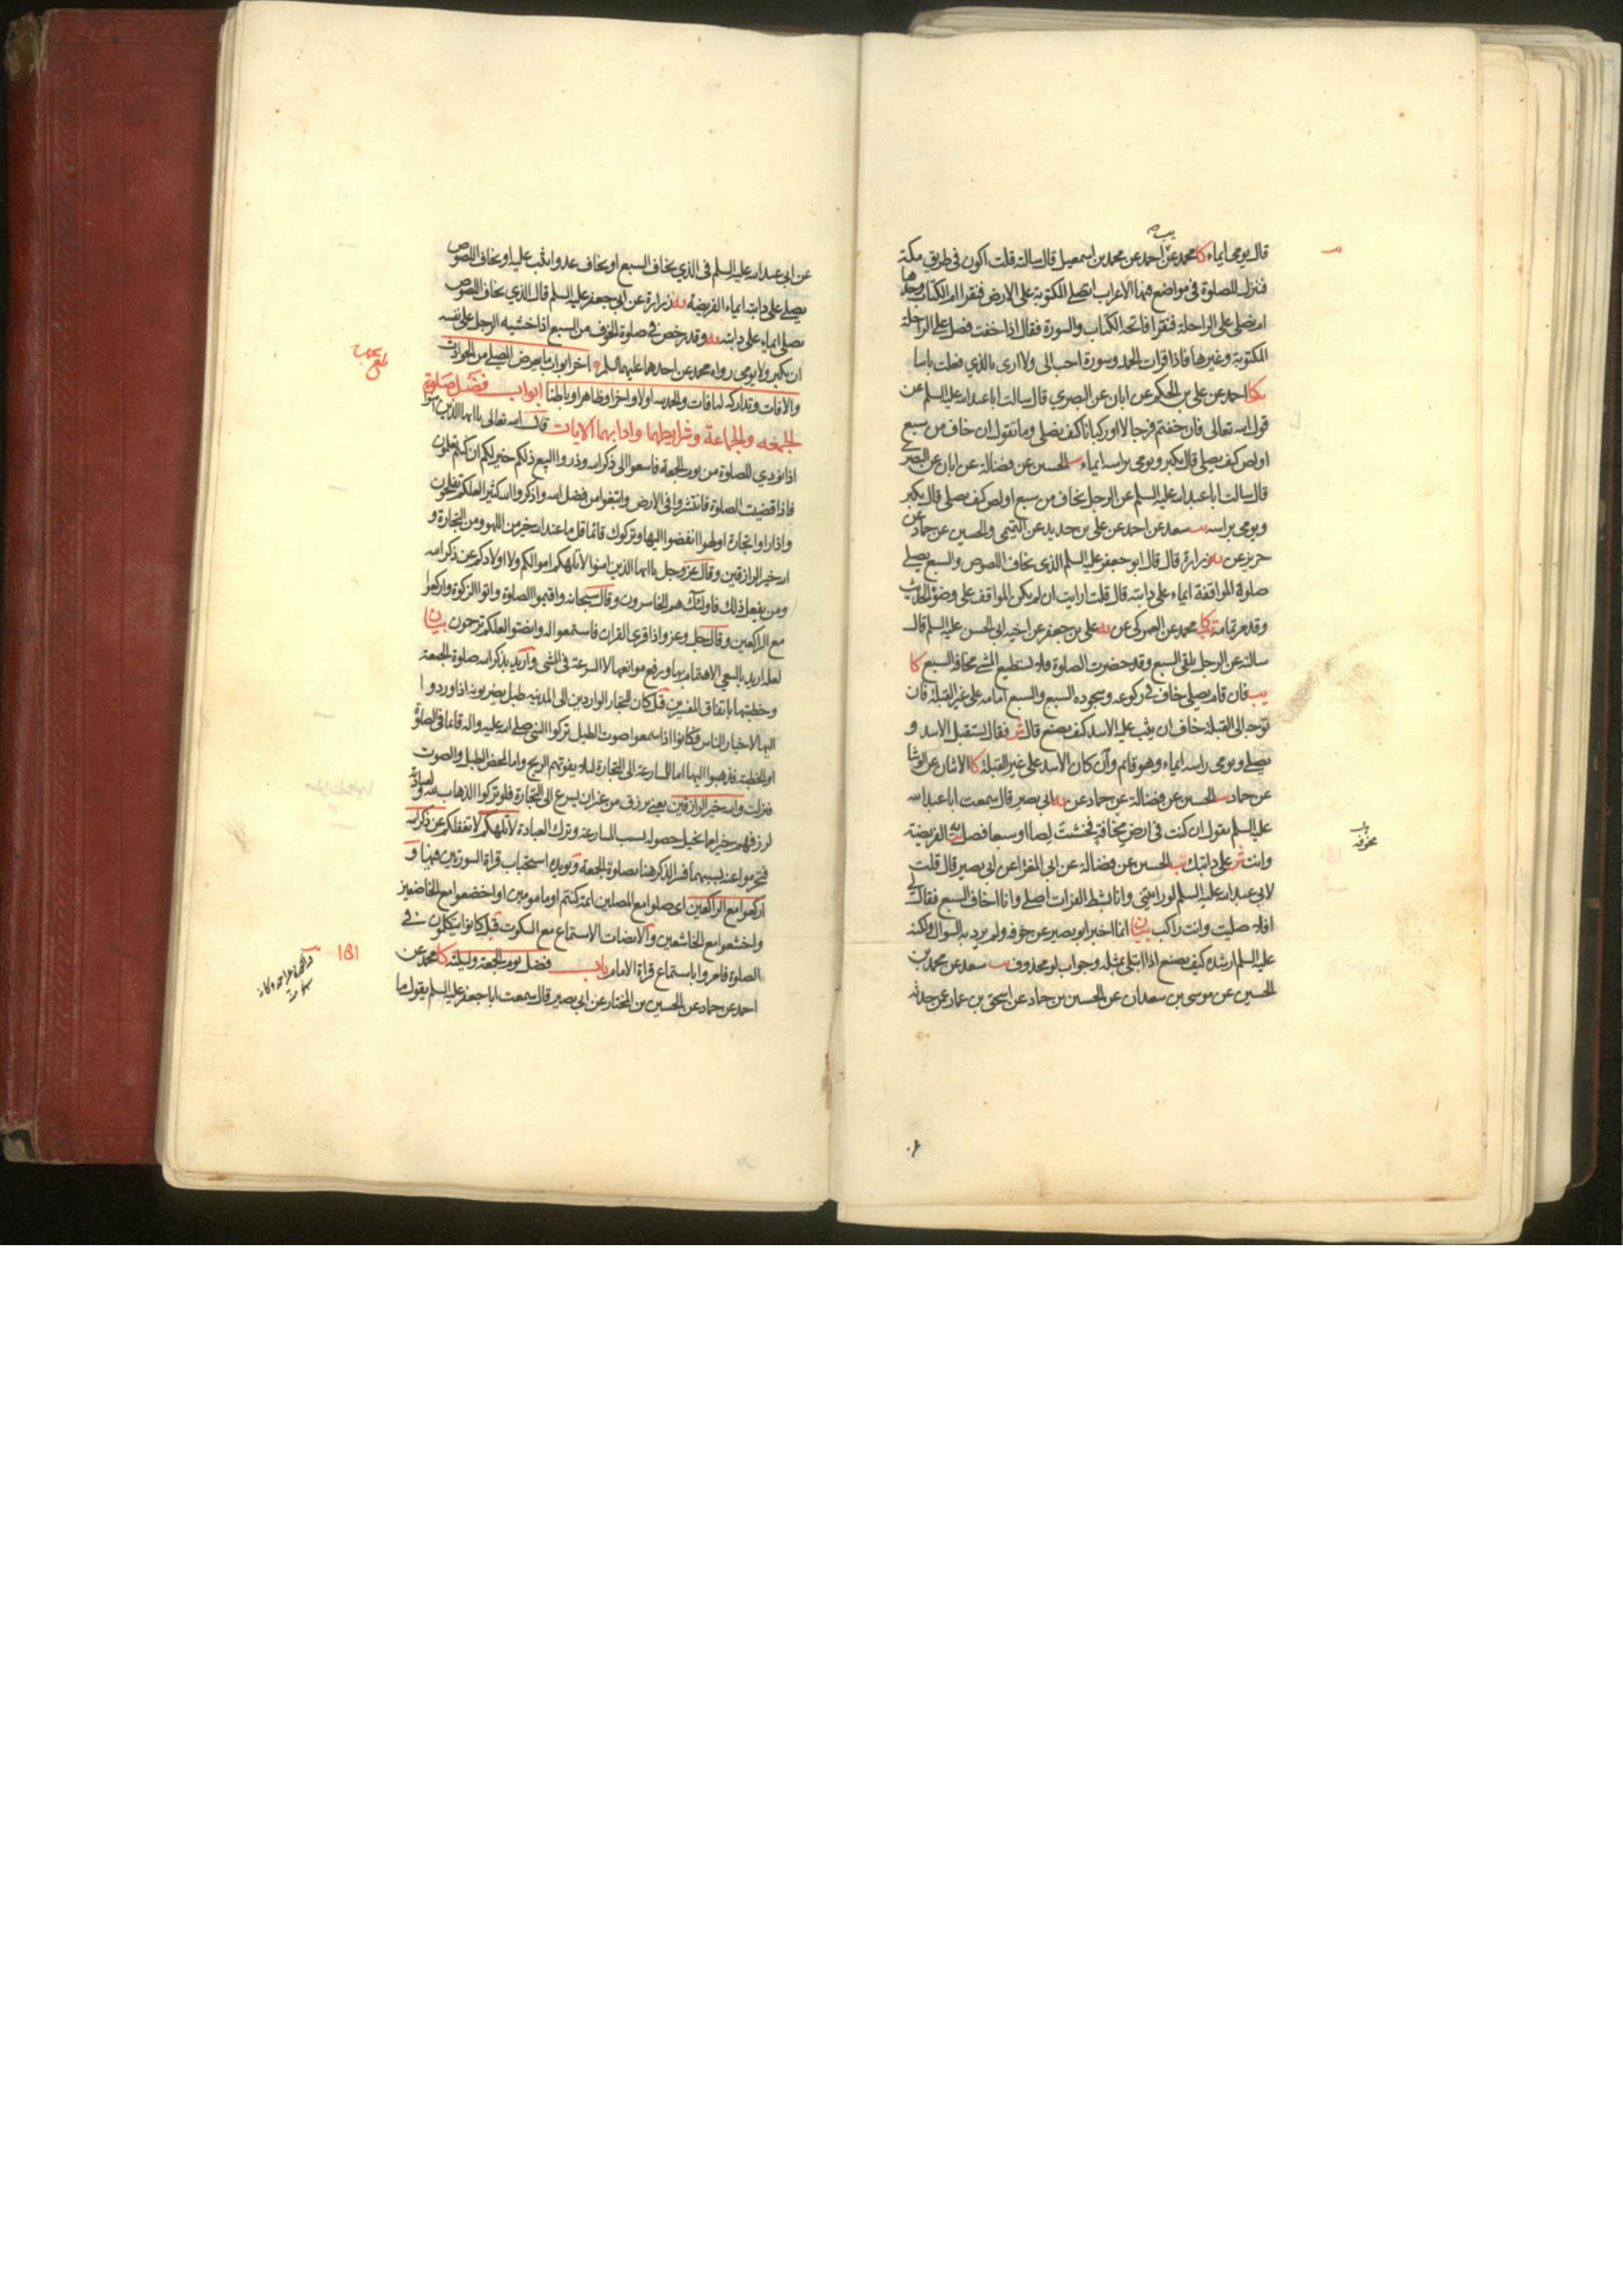 يب صه
قال يومى ايماء كا محمد عن احمد عن محمد بن اسمعيل قال سالته قلت اكون فى طريق مكة
فننزل للصلوة فى مواضع فيها الاعراب انصلى المكتوبة على الارض فنقرا ام الكتاب وحدها
ام نصلى على الراحلة فنقرا فاتحة الكتاب والسورة فقال اذا خفت فصل على الراحلة
المكتوبة وغيرها فاذا قرات الحمد وسورة احب الى ولا ارى بالذي فعلت باسا
كا احمد عن على بن الحكم عن ابان عن البصري قال سالت ابا عبد الله عليه السلم عن
قول الله تعالى فان خفتم فرجالا اوركبانا كيف يصلى وما تقول ان خاف من سبع
اولص كيف يصلى قال يكبر ويومى براسه ايماء يب الحسين عن فضالة عن ابان عن البصرى
قال سالت ابا عبد الله عليه السلم عن الرجل يخاف من سبع اولص كيف يصلى قال يكبر
ويومى براسه يب سعد عن احمد عن على بن حديد عن التميمى والحسين عن حماد عن
حريز عن يه زرارة قال قال ابو جعفر عليه السلم الذى يخاف اللصوص والسبع يصلى
صلوة المواقفة ايماء على دابته قال قلت ارايت ان لم يكن المواقف على وضوء الحديث
وقد مر تمامه كا محمد عن العمركى عن يه على بن جعفر عن اخيه ابى الحسن عليه السلم قال
سالته عن الرجل يلقى السبع وقد حضرت الصلوة فلا يستطيع المشى مخافة السبع كا
يب فان قام يصلى خاف فى ركوعه وسجوده السبع والسبع امامه على غير القبلة فان
توجه الى القبلة خاف ان يثب عليه الاسد كيف يصنع قال ش فقال يستقبل الاسد و
يصلى ويومى راسه ايماء وهو قائم وان كان الاسد على غير القبلة كا الاثنان عن الوشا
عن حماد يب الحسين عن فضالة عن حماد عن يه ابى بصير قال سمعت ابا عبد الله
عليه السلم يقول ان كنت فى ارض مخافة فخشيت لصا اوسبعا فصل الفريضة
مخوفة
وانت ش على دابتك يب الحسين عن فضالة عن ابى المغرا عن ابى بصير قال قلت
لابى عبد الله عليه السلم لو رايتنى وانا بشط الفرات اصلى وانا اخاف السبع فقال لى
افلا صليت وانت راكب بيان انما اخبر ابو بصير عن خوفه ولم يرد به السوال ولكنه
عليه السلم ارشده كيف يصنع اذا ابتلى بمثله وجواب لو محذوف يب سعد عن محمد بن
الحسين عن موسى بن سعدان عن الحسين بن حماد عن اسحق بن عمار عمن حدثه
عن ابى عبد الله عليه السلم فى الذي يخاف السبع او يخاف عدوا يثب عليه او يخاف اللصوص
يصلى على دابته ايماء الفريضة يه زرارة عن ابى جعفر عليه السلم قال الذي يخاف اللصوص
يصلى ايماء على دابته يه وقد رخص فى صلوة الخوف من السبع اذا خشيه الرجل على نفسه
ان يكبر ولا يومى رواه محمد عن احدهما عليهما السلم اخر ابواب ما يعرض المصلى من الحوادث
والافات وتداركه لما فات والحمد لله اولا واخرا وظاهرا وباطنا ابواب فضل صلوة
الجمعه والجماعة وشرايطهما وادابهما الايات قال الله تعالى يا ايها الذين امنوا
اذا نودي للصلوة من يوم الجمعة فاسعوا الى ذكر الله وذروا البيع ذلكم خير لكم ان كنتم تعلمون
فاذا قضيت الصلوة فانتشروا فى الارض وابتغوا من فضل الله واذكروا الله كثيرا لعلكم تفلحون
واذا راوا تجارة اولهوا انفضوا اليها وتركوك قائما قل ما عند الله خير من اللهو ومن التجارة و
الله خير الرازقين وقال عز وجل يا ايها الذين امنوا لا تلهكم اموالكم ولا اولادكم عن ذكر الله
ومن يفعل ذلك فاولئك هم الخاسرون وقال سبحانه واقيموا الصلوة واتوا الزكوة واركعوا
مع الراكعين وقال جل وعز واذا قرى القران فاستمعوا له وانصتوا لعلكم ترحمون بيان
لعله اريد بالسعى الاهتمام بها ورفع موانعها لا السرعة فى المشى واريد بذكر الله صلوة الجمعة
وخطبتها باتفاق المفسرين قيل كان للتجار الواردين الى المدينه طبل يضربونه اذا وردوا
اليها لاخبار الناس وكانوا اذا سمعوا صوت الطبل تركوا النبى صلى الله عليه واله قائما فى الصلوة
او الخطبة فذهبوا اليها اما للمسارعة الى التجارة لئلا يفوتهم الربح واما لمحض الطبل والصوت
فنزلت والله خير الرازقين يعنى يرزق من غير ان يسرع الى التجارة فلو تركوا الذهاب لله ولعبادته
لرزقهم خيرا مما تخيل حصوله بسبب المسارعة وترك العبادة لا تلهكم لا تغفلكم عن ذكر الله
فتحرموا عنه بسببهما فسر الذكر هنا بصلوة الجمعة ويويده استحباب قراة السورتين فيها و
اركعوا مع الراكعين اى صلوا مع المصلين ائمة كنتم او مامومين او اخضعوا مع الخاضعين
واخشعوا مع الخاشعين والانصات الاستماع مع السكوت قيل كانوا يتكلمون فى
الصلوة فامروا باستماع قراة الامام باب فضل يوم الجمعة وليلته كا محمد عن
احمد عن حماد عن الحسين بن المختار عن ابى بصير قال سمعت ابا جعفر عليه السلم يقول ما